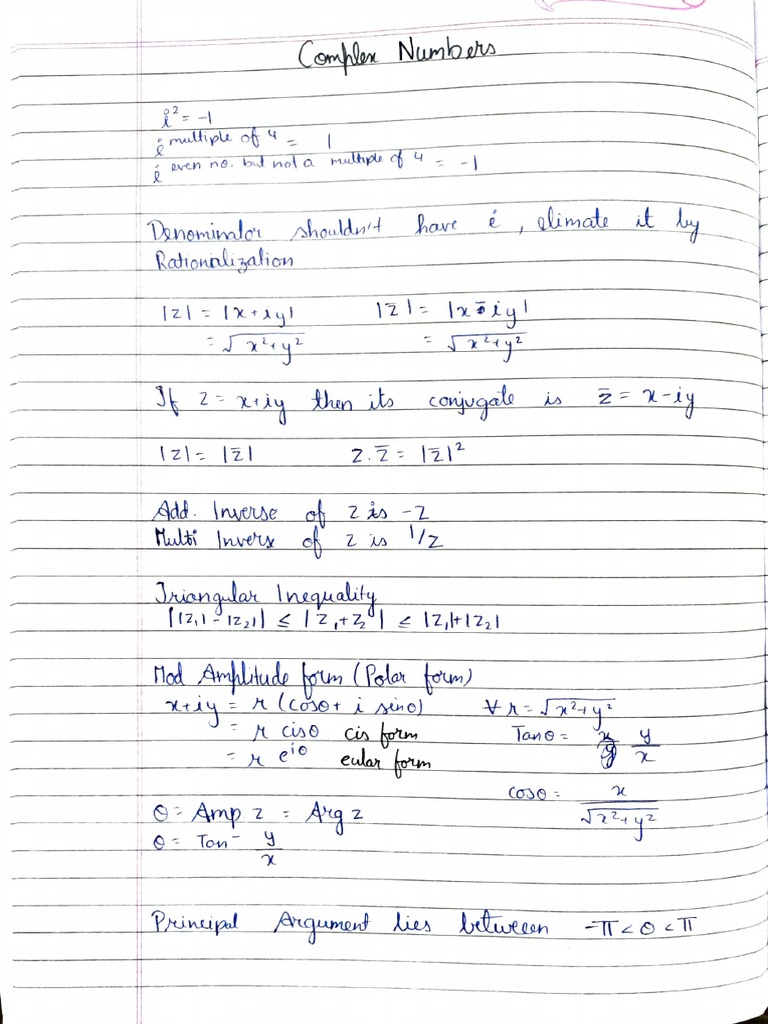 Complex Numbers
i² = -1
i multiple of 4 = 1
i even no. but not a multiple of 4 = -1
Denominator shouldn't have i, elimate it by
Rationalization
|z| = |x+iy| |z̄| = |x-iy|
= √x²+y² = √x²+y²
If z = x+iy then its conjugate is z̄ = x-iy
|z| = |z̄| z.z̄ = |z̄|²
Add. Inverse of z is -z
Multi Inverse of z is 1/z
Triangular Inequality
||z₁| - |z₂|| ≤ |z₁+z₂| ≤ |z₁|+|z₂|
Mod Amplitude form (Polar form)
x+iy = r (cosθ + i sinθ) ∀ r = √x²+y²
= r cisθ cis form Tanθ = y/x
= r e^iθ eular form
cosθ = x/√x²+y²
θ = Amp z = Arg z
θ = Tan⁻ y/x
Principal Argument lies between -π < θ < π